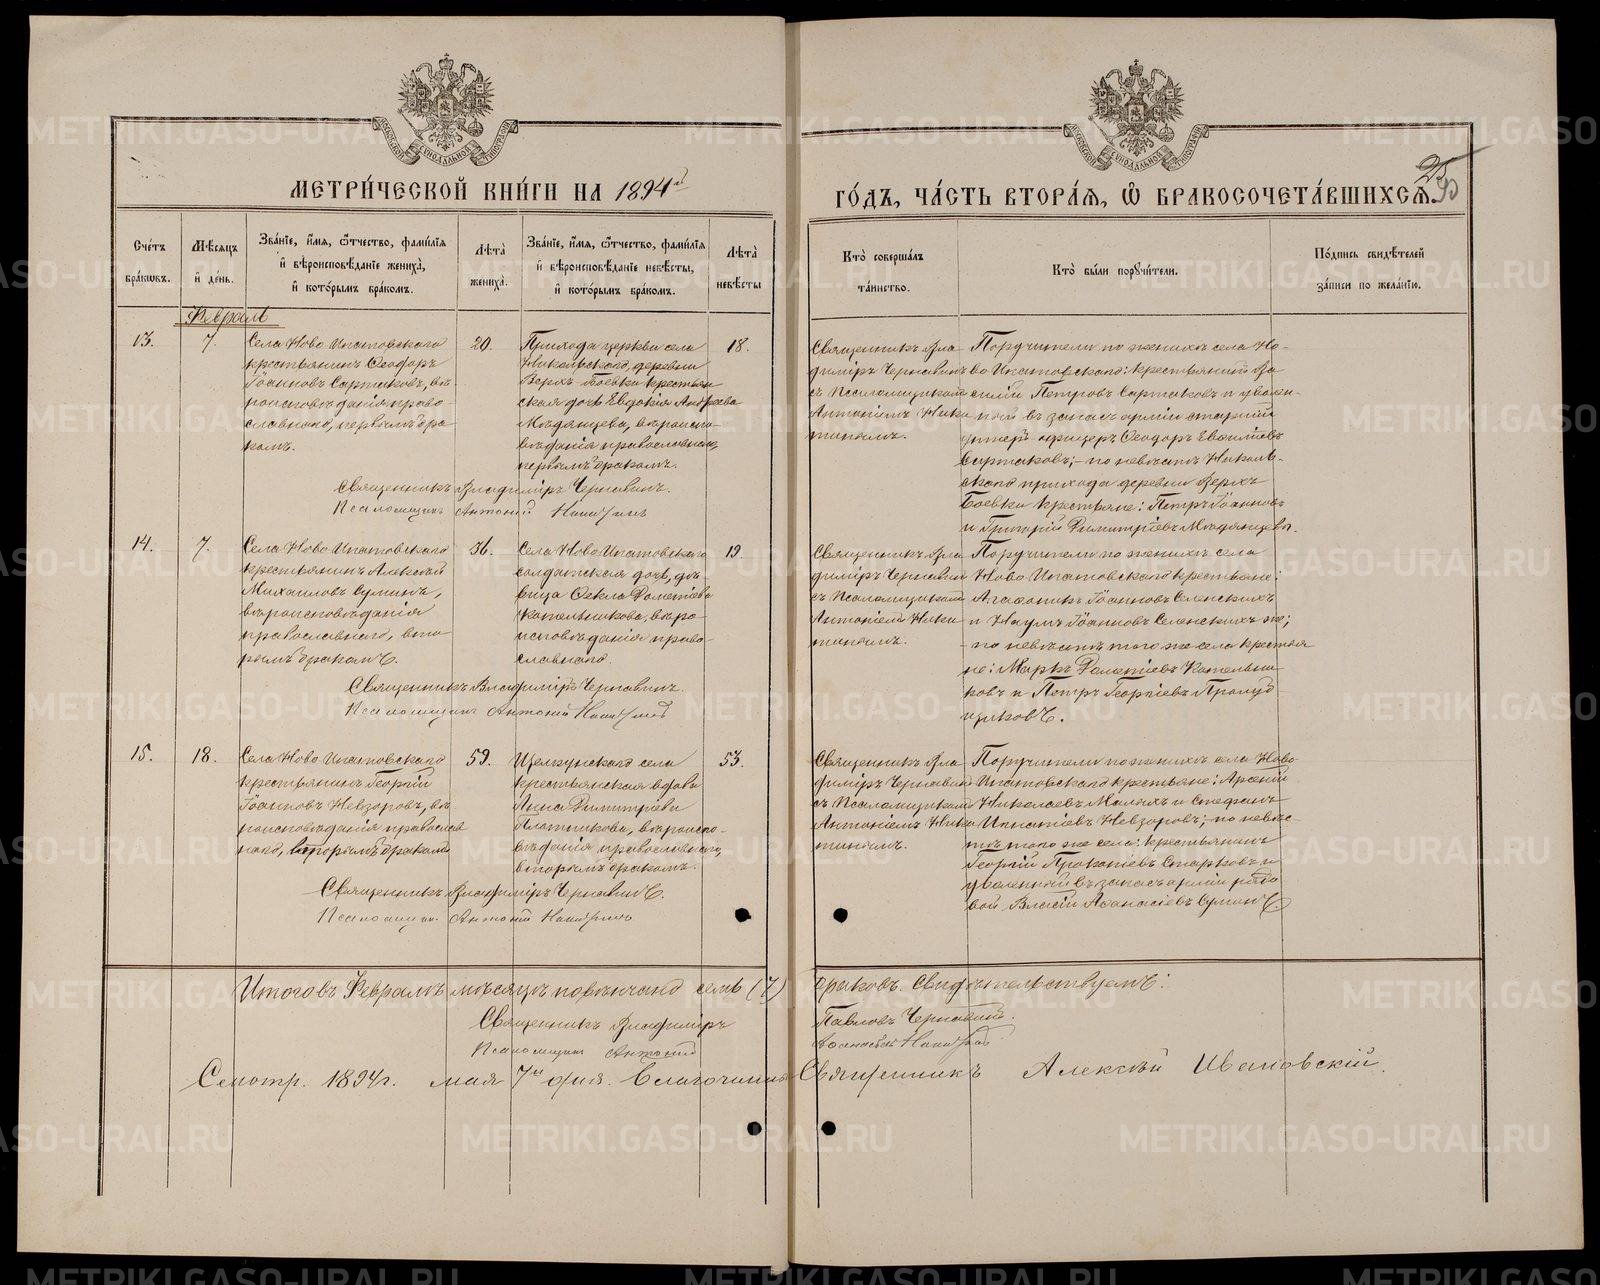 МЕТРИ́ЧЕСКОЙ КНИ́ГИ НА 1894й
ГО́ДЪ, ЧА́СТЬ ВТОРА́Я, Ѡ БРАКОСОЧЕТА́ВШИХСЯ.
25
МОСКОВСКОЙ СѴНОДАЛЬНОЙ ТИПОГРАФІИ
МОСКОВСКОЙ СѴНОДАЛЬНОЙ ТИПОГРАФІИ
Сче́тъ бра́кѡвъ.
Мѣ́сяцъ и де́нь.
Зва́ніе, и́мя, ѻ́тчество, фами́лія
и вѣроисповѣ́даніе жениха̀,
и кото́рымъ бра́комъ.
Лѣ́та жениха̀.
Зва́ніе, и́мя, ѻ́тчество, фами́лія
и вѣроисповѣ́даніе невѣ́сты,
и кото́рымъ бра́комъ.
Лѣ́та невѣ́сты
Кто̀ соверша́лъ
та́инство.
Кто̀ бы́ли порꙋчи́тели.
По́дпись свидѣ́телей
за́писи по жела́нію.
Февраль
13.
7.
Села Ново Ипатовскаго
крестьянинъ Ѳеодоръ
Іоанновъ Сартаковъ, вѣ-
роисповѣданія право-
славнаго, первымъ бра
комъ.
20.
Прихода церкви села
Никольскаго, деревни
Верхъ Боевки крестьян
ская дочь Евдокія Андреева
Мѣдянцева, вѣроиспо-
вѣданія православнаго,
первымъ бракомъ.
18.
Священникъ Вла
димiръ Чернавинъ
съ Псаломщикомъ
Антоніемъ Ники
тинымъ.
Поручители по женихѣ села Но-
во Ипатовскаго: крестьянинъ Ва
силій Петровъ Сартаковъ и уволен-
ный въ запасъ арміи старшій
унтеръ офицеръ Ѳеодоръ Евѳиміевъ
Сартаковъ;- по невѣстѣ Николь-
скаго прихода деревни Верхъ
Боевки крестьяне: Петръ Іоанновъ
и Григорій Димитріевъ Мѣдянцевы.
Священникъ Владиміръ Чернавинъ.
Псаломщикъ Антоній Никитинъ
14.
7.
Села Ново Ипатовскаго
крестьянинъ Алексѣй
Михаиловъ Суминъ,
вѣроисповѣданія
православнаго, вто-
рымъ бракомъ.
36.
Села Ново Ипатовскаго
солдатская дочь, дѣ-
вица Ѳекла
Котельникова, вѣро
исповѣданія право-
славнаго.
19.
Священникъ Вла
диміръ Чернавинъ
съ Псаломщикомъ
Антоніемъ Ники
тинымъ.
Поручители по женихѣ села
Ново Ипатовскаго крестьяне:
Агаѳоникъ Іоанновъ Селенскихъ
и Наумъ Іоанновъ Селенскихъ же;
- по невѣстѣ того же села крестья
не: Маркъ Котельни
ковъ и Петръ Георгіевъ
Священникъ Владиміръ Чернавинъ.
Псаломщикъ Антоній Никитинъ
15.
18.
Села Ново Ипатовскаго
крестьянинъ Георгій
Іоанновъ Невзоровъ, вѣ
роисповѣданія православ
наго, вторымъ бракомъ
59.
Щелкунскаго села
крестьянская вдова
Анна Димитріева
Плотникова, вѣроиспо-
вѣданія православнаго,
вторымъ бракомъ.
53.
Священникъ Вла
диміръ Чернавинъ
съ Псаломщикомъ
Антоніемъ Ники
тинымъ.
Поручители по женихѣ села Ново
Ипатовскаго крестьяне: Арсеній
Николаевъ Малыхъ и Стефанъ
Игнатіевъ Невзоровъ;- по невѣс-
тѣ того же села: крестьянинъ
Георгій Прокопіевъ Старковъ и
уволенный въ запасъ арміи рядо
вой Власій Аѳанасіевъ Суминъ.
Священникъ Владиміръ Чернавинъ.
Псаломщикъ Антоній Никитинъ
Итого въ Февралѣ мѣсяцѣ повѣнчано семь (7) браковъ. Свидѣтельствуемъ:
Священникъ Владиміръ Павловъ Чернавинъ.
Псаломщикъ Антоній Никитинъ
Смотр. 1894 г. мая 7го дня. Благочинный Священникъ Алексѣй Ивановскій.
METRIKI.GASO-URAL.RU